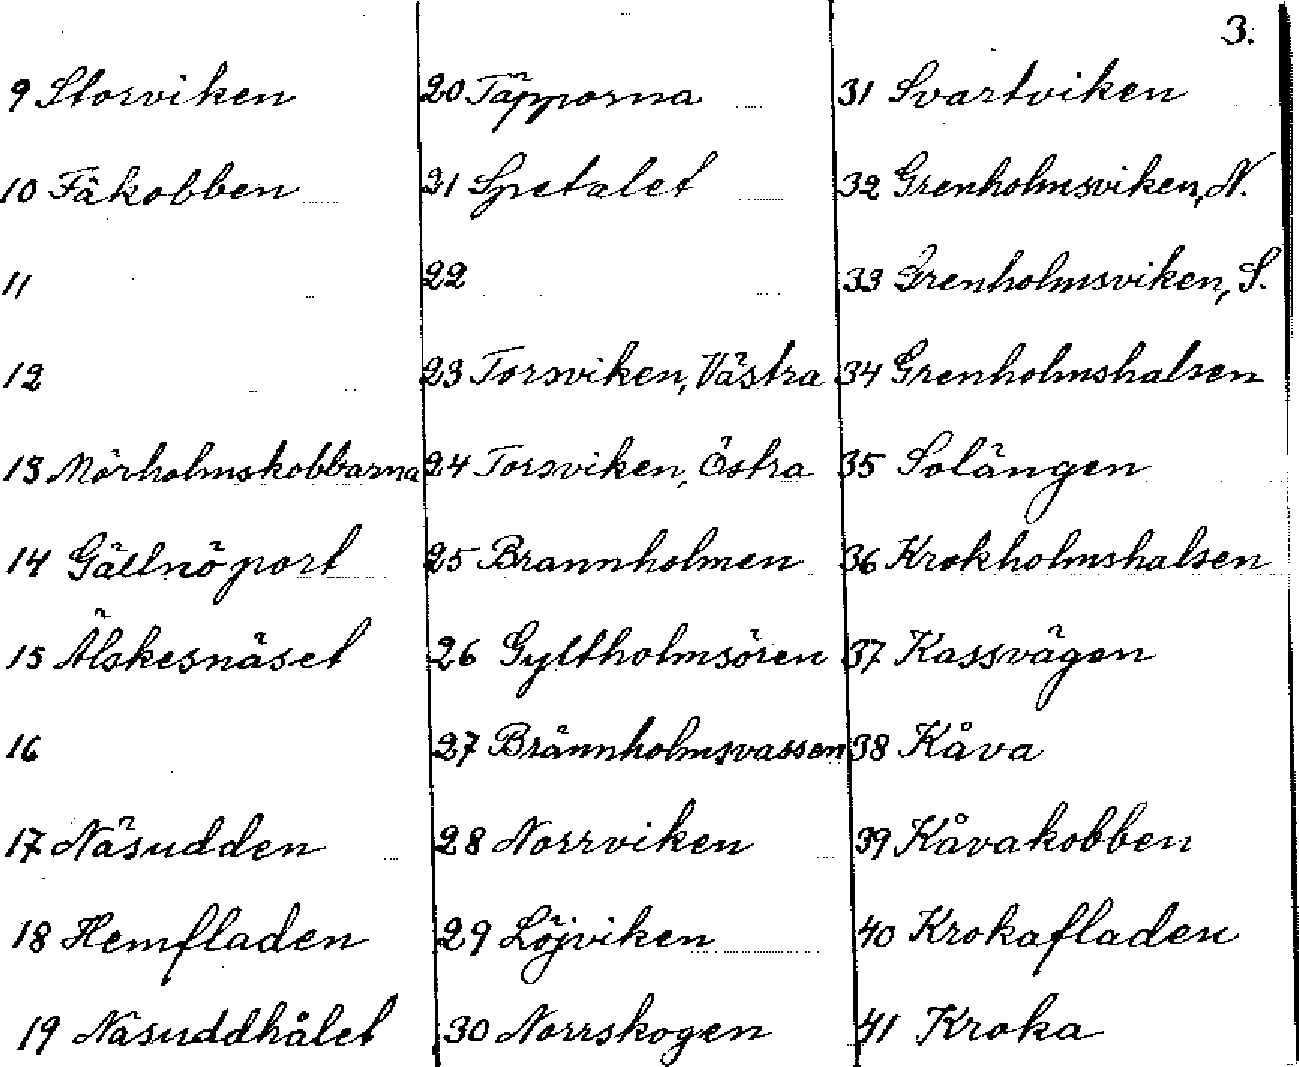 3.
9 Storviken
10 Fäkobben
11
12
13 Mörholmskobbarna
14 Gällnöport
15 Älskesnäset
16
17 Näsudden
18 Hemfladen
19 Näsuddhålet
20 Täpporna
21 Spetalet
22
23 Torsviken, Västra
24 Torsviken, Östra
25 Brannholmen
26 Gyltholmsören
27 Brännholmsvassen
28 Norrviken
29 Löjviken
30 Norrskogen
31 Svartviken
32 Grenholmsviken, N.
33 Grenholmsviken, S.
34 Grenholmshalsen
35 Solängen
36 Krokholmshalsen
37 Kassvägen
38 Kåva
39 Kåvakobben
40 Krokafladen
41 Kroka